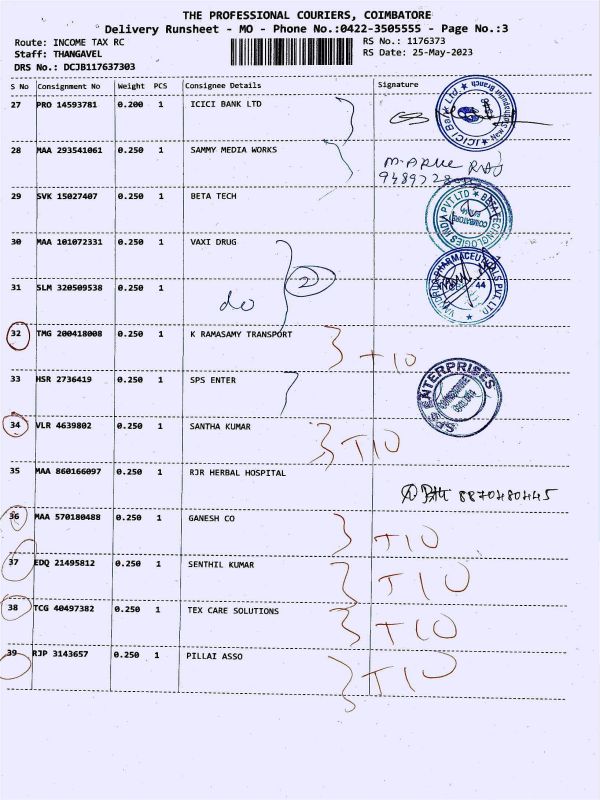 THE PROFESSIONAL COURIERS, COIMBATORE
Delivery Runsheet - MO - Phone No.:0422-3505555 - Page No.:3
Route: INCOME TAX RC RS No.: 1176373
Staff: THANGAVEL RS Date: 25-May-2023
DRS No.: DCJB117637303
S No Consignment No Weight PCS Consignee Details Signature
27 PRO 14593781 0.200 1 ICICI BANK LTD
28 MAA 293541061 0.250 1 SAMMY MEDIA WORKS
29 SVK 15027407 0.250 1 BETA TECH
30 MAA 101072331 0.250 1 VAXI DRUG
2
31 SLM 320509538 0.250 1 do
32 TMG 200418008 0.250 1 K RAMASAMY TRANSPORT T10
33 HSR 2736419 0.250 1 SPS ENTER SPS ENTERPRISES
34 VLR 4639802 0.250 1 SANTHA KUMAR T10
35 MAA 860166097 0.250 1 RJR HERBAL HOSPITAL 8870480445
36 MAA 570180488 0.250 1 GANESH CO T10
37 EDQ 21495812 0.250 1 SENTHIL KUMAR T10
38 TCG 40497382 0.250 1 TEX CARE SOLUTIONS T10
39 RJP 3143657 0.250 1 PILLAI ASSO T10